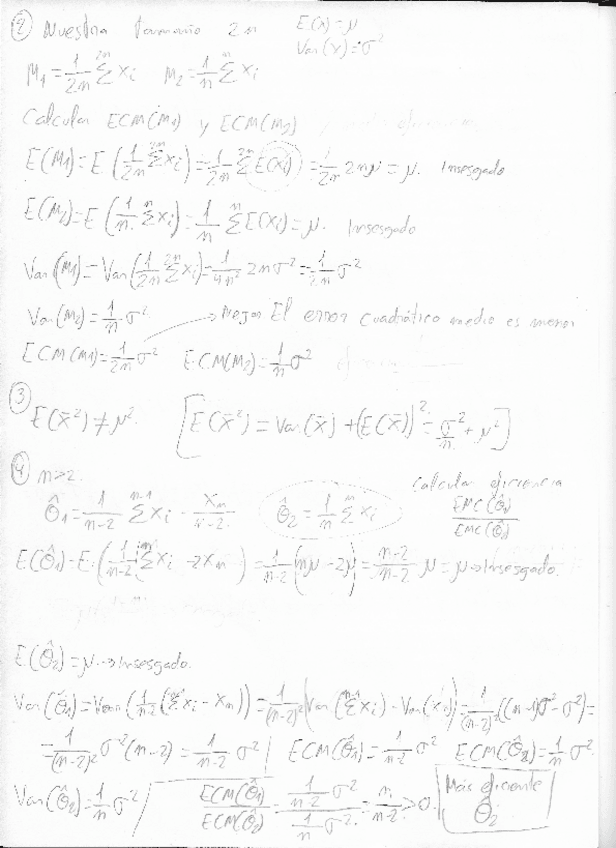 ② Nuestra tamaño 2n E(x)=μ
Var(x)=σ²
M₁=1/2n Σ²ⁿ xᵢ M₂=1/n Σⁿ xᵢ
Calcular ECM(M₁) y ECM(M₂)
E(M₁)=E(1/2n Σ²ⁿ xᵢ)=1/2n Σ²ⁿ E(xᵢ)=1/2n 2nμ=μ. Insesgado
E(M₂)=E(1/n Σⁿ xᵢ)=1/n Σⁿ E(xᵢ)=μ. Insesgado
Var(M₁)=Var(1/2n Σ²ⁿ xᵢ)=1/4n² 2nσ²=1/2n σ²
Var(M₂)=1/n σ² → Mejor El error cuadrático medio es menor
ECM(M₁)=1/2n σ² ECM(M₂)=1/n σ²
③ E(x̄²)≠μ². [E(x̄²)=Var(x̄)+(E(x̄))²=σ²/n+μ²]
④ n>2. Calcular eficiencia
θ̂₁=1/n-2 Σⁿ⁻¹ xᵢ - xₙ/n-2 θ̂₂=1/n Σⁿ xᵢ EMC(θ̂₁)/EMC(θ̂₂)
E(θ̂₁)=E(1/n-2 Σⁿ xᵢ -2xₙ)=1/n-2(nμ-2μ)=n-2/n-2 μ=μ→Insesgado.
E(θ̂₂)=μ→Insesgado.
Var(θ̂₁)=Var(1/n-2(Σⁿ⁻¹ xᵢ-xₙ))=1/(n-2)²(Var(Σⁿ⁻¹ xᵢ)-Var(xₙ))=1/(n-2)²((n-1)σ²-σ²)=
=1/(n-2)² σ²(n-2)=1/n-2 σ² ECM(θ̂₁)=1/n-2 σ² ECM(θ̂₂)=1/n σ²
Var(θ̂₂)=1/n σ² ECM(θ̂₁)/ECM(θ̂₂)=1/n-2 σ²/1/n σ²=n/n-2>0. Más eficiente
θ̂₂